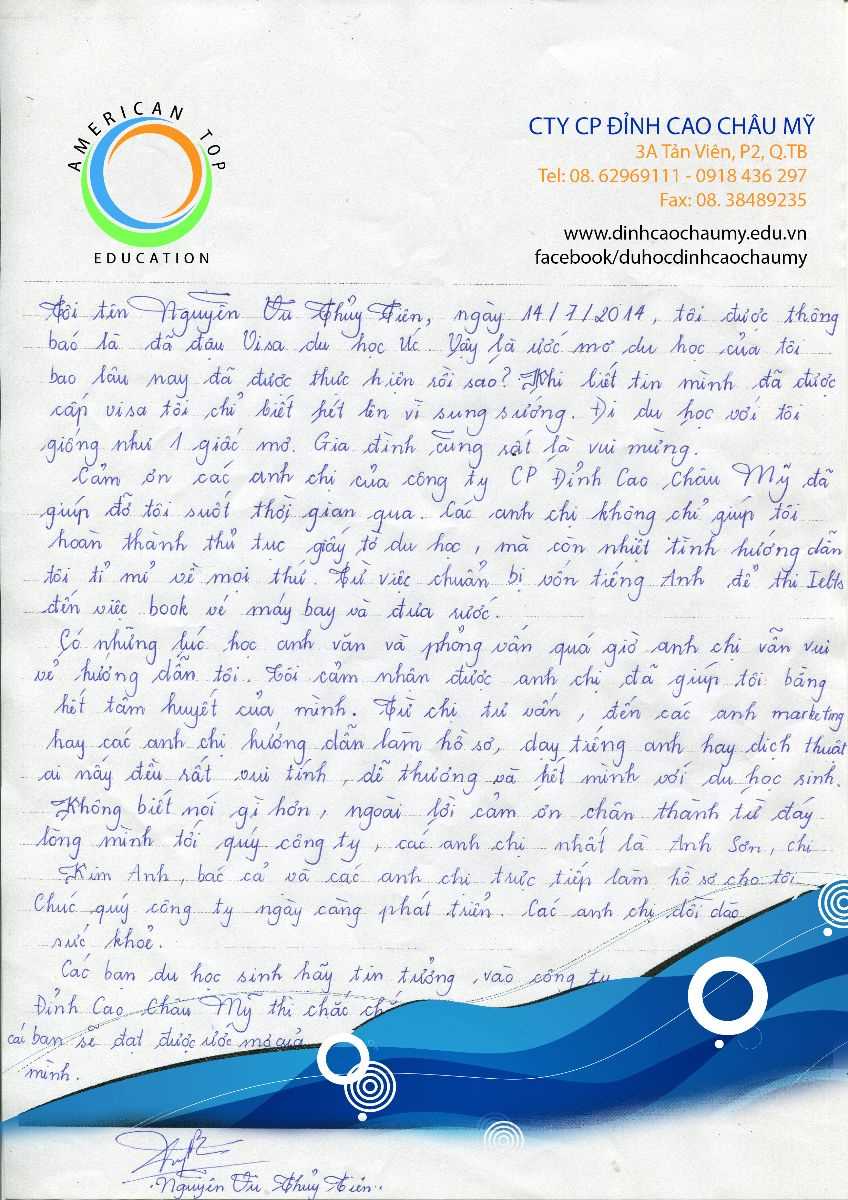 AMERICAN TOP
EDUCATION
CTY CP ĐỈNH CAO CHÂU MỸ
3A Tản Viên, P2, Q.TB
Tel: 08. 62969111 - 0918 436 297
Fax: 08. 38489235
www.dinhcaochaumy.edu.vn
facebook/duhocdinhcaochaumy
Tôi tên Nguyễn Vũ Thủy Tiên, ngày 14/7/2014, tôi được thông
báo là đã đậu Visa du học Úc. Vậy là ước mơ du học của tôi
bao lâu nay đã được thực hiện rồi sao? Khi biết tin mình đã được
cấp visa tôi chỉ biết hét lên vì sung sướng. Đi du học với tôi
giống như 1 giấc mơ. Gia đình cũng rất là vui mừng.
Cảm ơn các anh chị của công ty CP Đỉnh Cao Châu Mỹ đã
giúp đỡ tôi suốt thời gian qua. Các anh chị không chỉ giúp tôi
hoàn thành thủ tục giấy tờ du học, mà còn nhiệt tình hướng dẫn
tôi tỉ mỉ về mọi thứ. Từ việc chuẩn bị vốn tiếng Anh để thi Ielts
đến việc book vé máy bay và đưa rước.
Có những lúc học anh văn và phỏng vấn quá giờ anh chị vẫn vui
vẻ hướng dẫn tôi. Tôi cảm nhận được anh chị đã giúp tôi bằng
hết tâm huyết của mình. Từ chị tư vấn, đến các anh marketing
hay các anh chị hướng dẫn làm hồ sơ, dạy tiếng anh hay dịch thuật
ai nấy đều rất vui tính, dễ thương và hết mình với du học sinh.
Không biết nói gì hơn, ngoài lời cảm ơn chân thành từ đáy
lòng mình tới quý công ty, các anh chị nhất là Anh Sơn, chị
Kim Anh, bác cả và các anh chị trực tiếp làm hồ sơ cho tôi
Chúc quý công ty ngày càng phát triển. Các anh chị dồi dào
sức khoẻ.
Các bạn du học sinh hãy tin tưởng vào công ty
Đỉnh Cao Châu Mỹ thì chắc
các bạn sẽ đạt được ước mơ của
mình.
Nguyễn Vũ Thủy Tiên